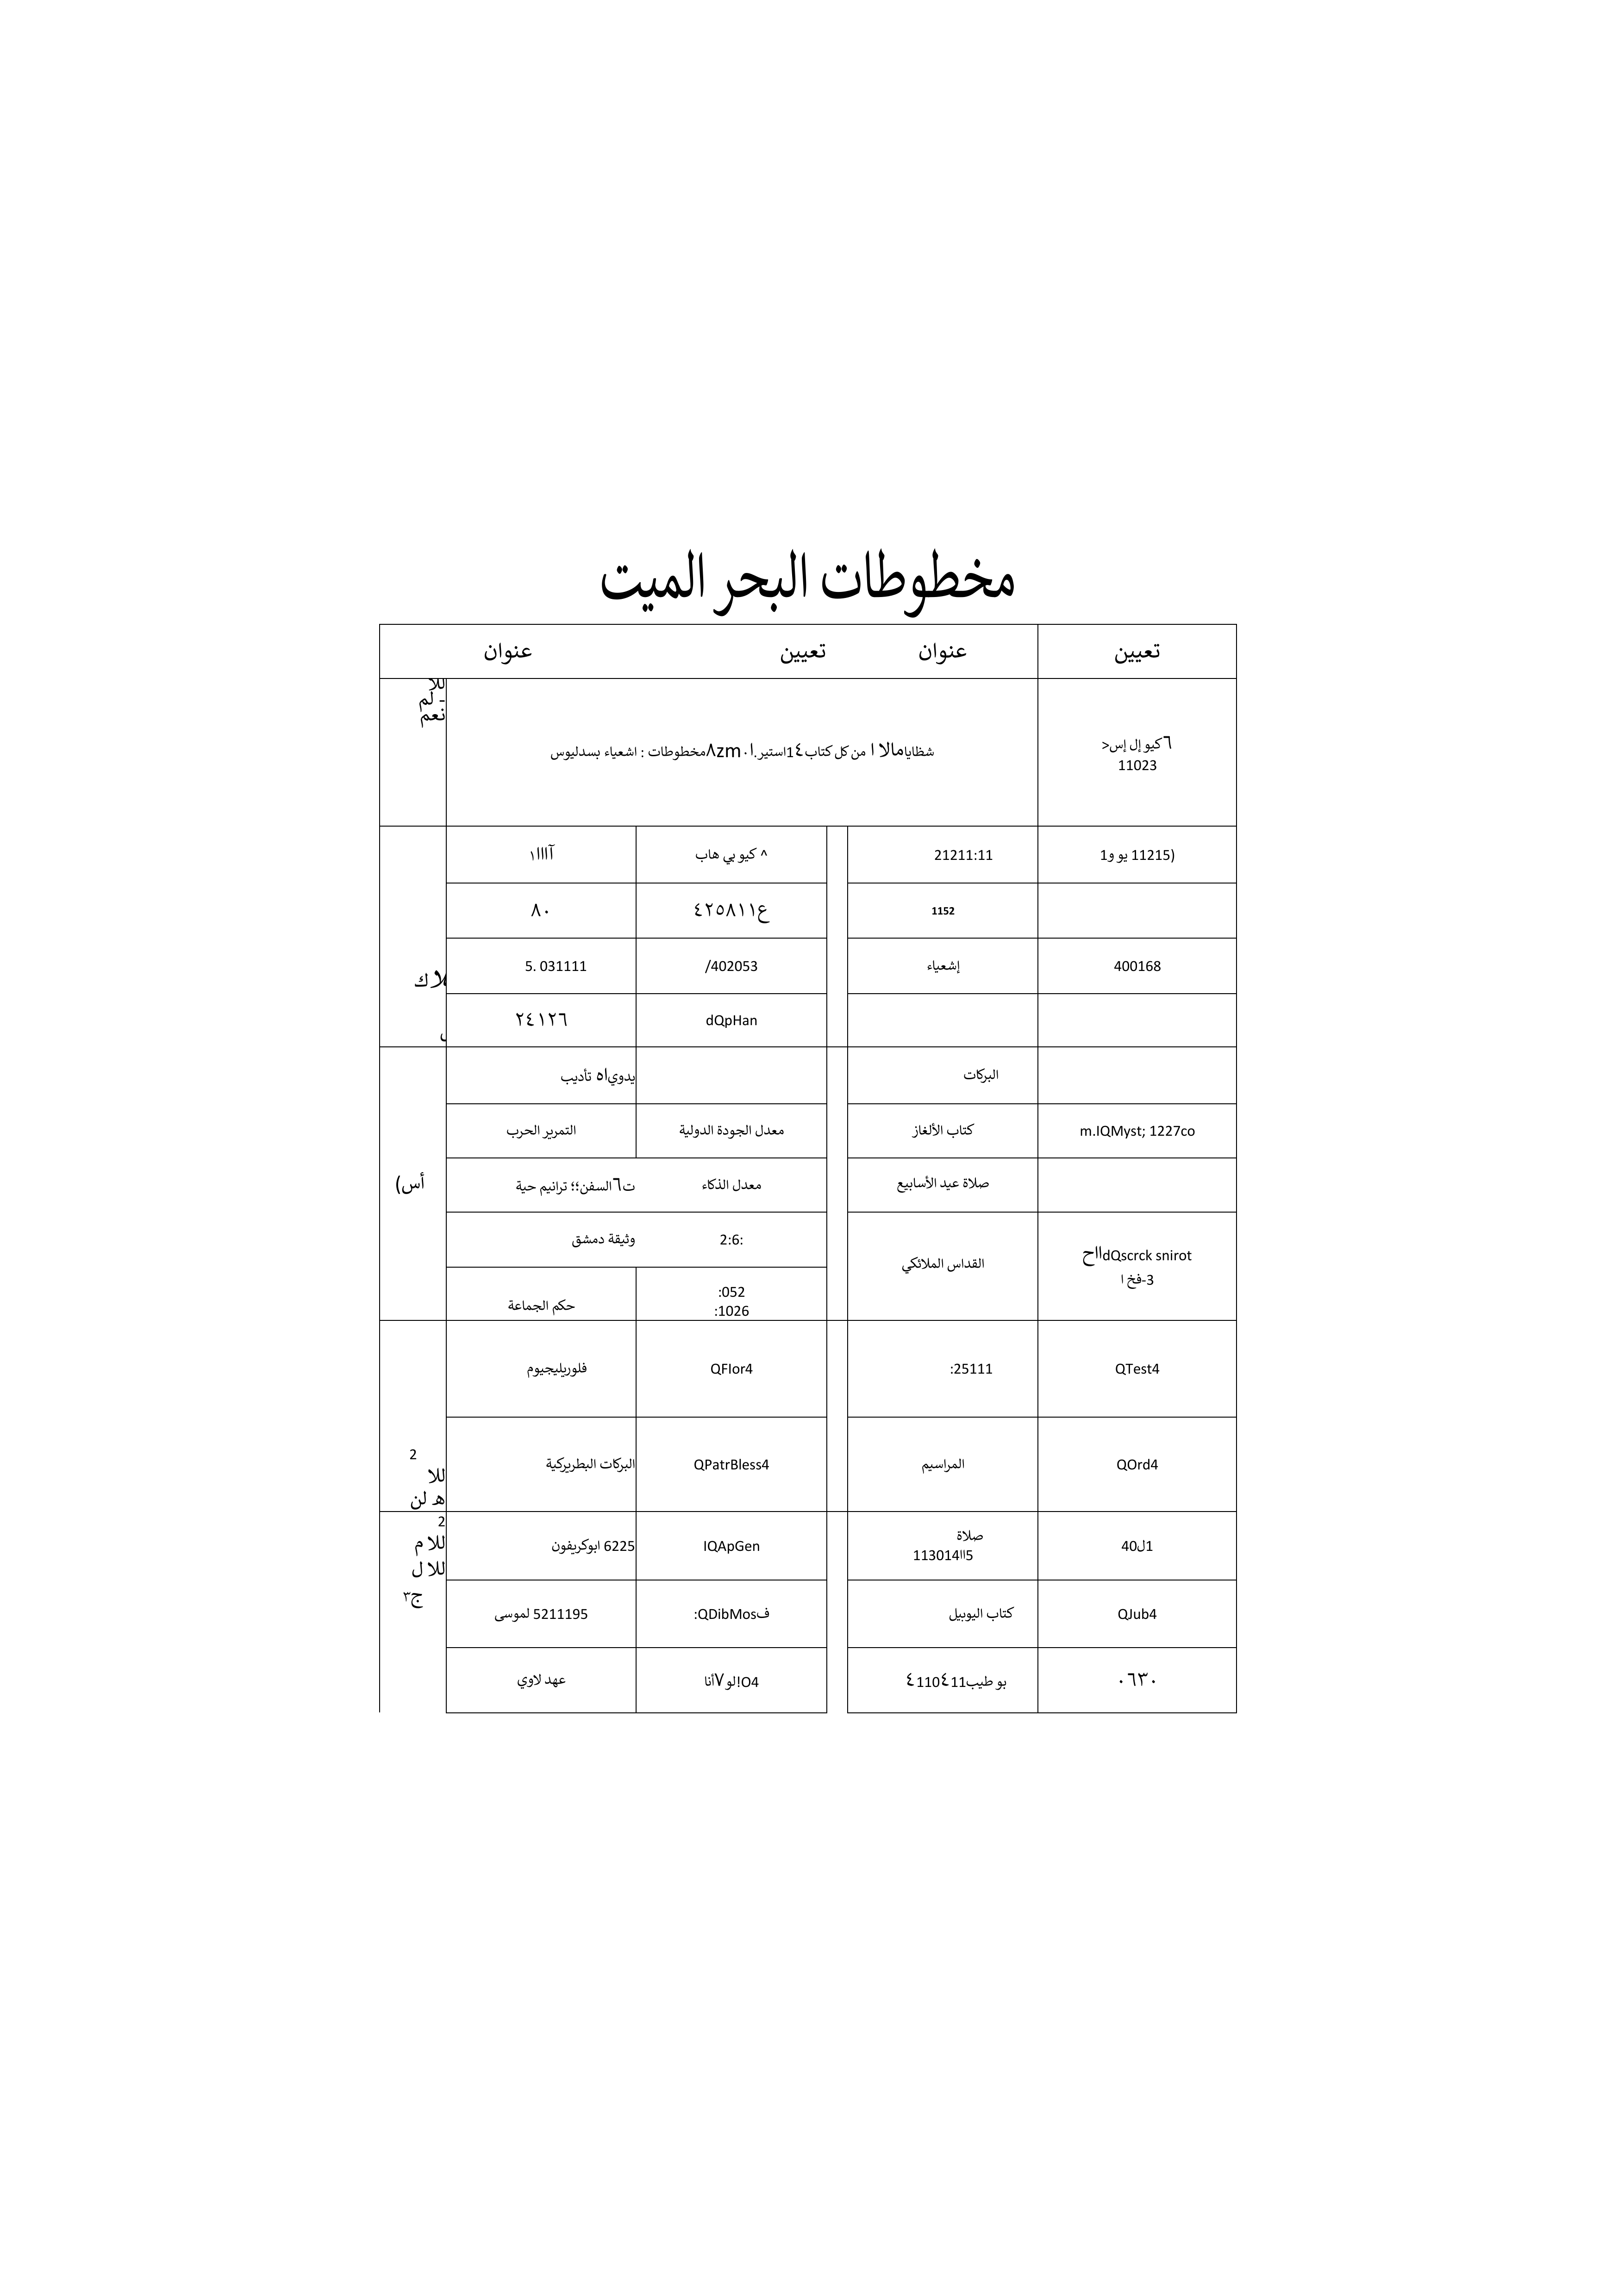 مخطوطات البحر الميت
تعيين عنوان تعيين عنوان
للا
- لم
نعم
٦كيو إل إس>
11023
شظايامالا ا من كل كتاب1٤استير.ا٨zm٠مخطوطات : اشعياء بسدليوس
(11215 يو و1
21211:11
^ كيو بي هاب
آااا١
1152
ع٤٢٥٨١١
٨٠
400168
إشعياء
/402053
5. 031111
dQpHan
٢٤١٢٦
لاك
البركات
يدوياه تأديب
m.IQMyst; 1227co
كتاب الألغاز
معدل الجودة الدولية
التمرير الحرب
أس)
صلاة عيد الأسابيع
معدل الذكاء
ت٦السفن؛؛ ترانيم حية
dQscrck snirotااح
3-فخ ا
القداس الملائكي
2:6:
وثيقة دمشق
:052
:1026
حكم الجماعة
QTest4
:25111
QFIor4
فلوريليجيوم
QOrd4
المراسيم
QPatrBless4
البركات البطريركية
2
للا
ه لن
40ل1
صلاة
5اا113014
IQApGen
6225 ابوكريفون
2
للا م
للا ل
ج٣
QJub4
كتاب اليوبيل
:QDibMosف
5211195 لموسى
٠٦٣٠
بو طيب11٤110٤
O4!لو٧أنا
عهد لاوي